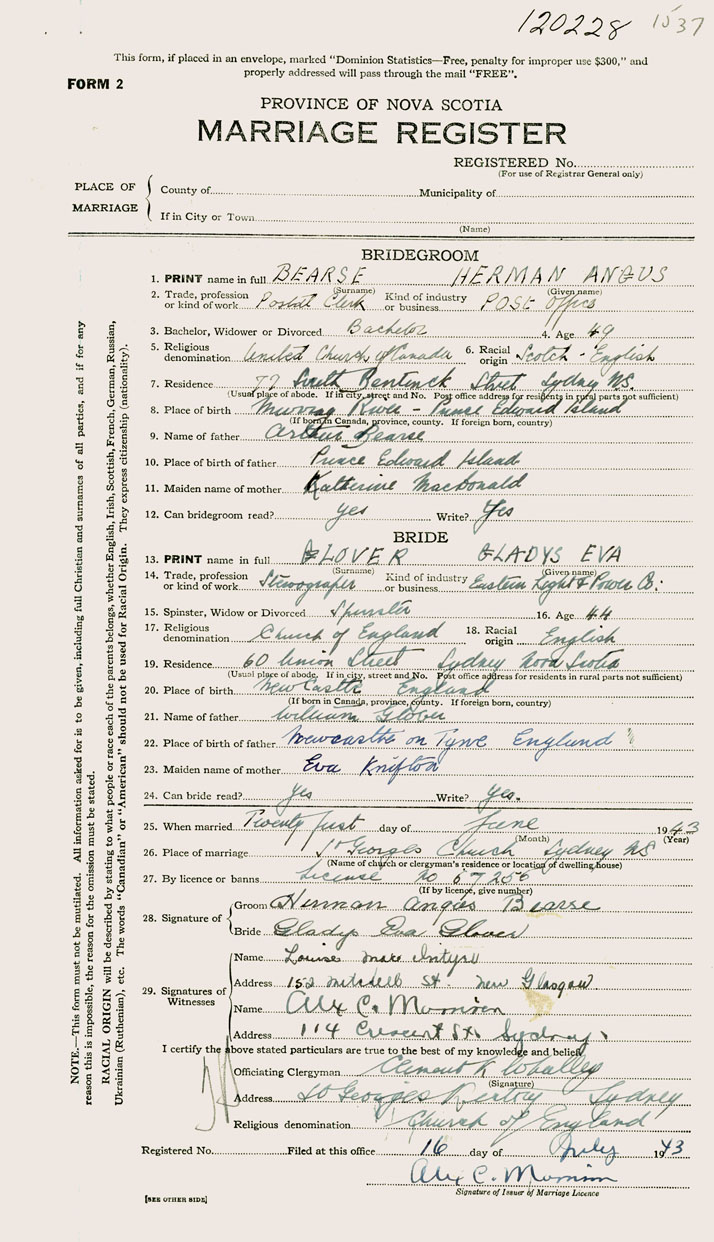 120228 1537
This form, if placed in an envelope, marked "Dominion Statistics—Free, penalty for improper use $300," and
properly addressed will pass through the mail "FREE".
FORM 2
PROVINCE OF NOVA SCOTIA
MARRIAGE REGISTER
REGISTERED No.
(For use of Registrar General only)
PLACE OF MARRIAGE
County of Municipality of
If in City or Town
(Name)
BRIDEGROOM
1. PRINT name in full BEARSE HERMAN ANGUS
(Surname) (Given name)
2. Trade, profession or kind of work Postal Clerk Kind of industry or business POSE Office
3. Bachelor, Widower or Divorced Bachelor 4. Age 49
5. Religious denomination United Church of Canada 6. Racial origin Scotch - English
7. Residence 77 South Bentinck Street Sydney NS.
(Usual place of abode. If in city, street and No. Post office address for residents in rural parts not sufficient)
8. Place of birth Murray River - Prince Edward Island
(If born in Canada, province, county. If foreign born, country)
9. Name of father Arthur Bearse
10. Place of birth of father Prince Edward Island
11. Maiden name of mother Katherine MacDonald
12. Can bridegroom read? yes Write? Yes
BRIDE
13. PRINT name in full GLOVER GLADYS EVA
(Surname) (Given name)
14. Trade, profession or kind of work Stenographer Kind of industry or business Eastern Light & Power Co.
15. Spinster, Widow or Divorced Spinster 16. Age 44
17. Religious denomination Church of England 18. Racial origin English
19. Residence 60 Union Street Sydney Nova Scotia
(Usual place of abode. If in city, street and No. Post office address for residents in rural parts not sufficient)
20. Place of birth NewCastle England
(If born in Canada, province, county. If foreign born, country)
21. Name of father William Glover
22. Place of birth of father Newcastle on Tyne England
23. Maiden name of mother Eva Knifton
24. Can bride read? Yes Write? Yes.
25. When married Twenty first day of June 1943
(Month) (Year)
26. Place of marriage St Georges Church Sydney NS
(Name of church or clergyman's residence or location of dwelling house)
27. By licence or banns License No 67256
(If by licence, give number)
28. Signature of
Groom Herman Angus Bearse
Bride Gladys Eva Glover
29. Signatures of Witnesses
Name Louise Mac Intyre
Address 152 Mitchell St. New Glasgow
Name Alex C. Munion
Address 114 Crescent St. Sydney
I certify the above stated particulars are true to the best of my knowledge and belief.
Officiating Clergyman Clement K Whalley
(Signature)
Address St Georges Rectory Sydney
Religious denomination Church of England
Registered No. Filed at this office 16 day of July 1943
Alex C. Munion
Signature of Issuer of Marriage Licence
[SEE OTHER SIDE]
NOTE.—This form must not be mutilated. All information asked for is to be given, including full Christian and surnames of all parties, and if for any
reason this is impossible, the reason for the omission must be stated.
RACIAL ORIGIN will be described by stating to what people or race each of the parents belongs, whether English, Irish, Scottish, French, German, Russian,
Ukrainian (Ruthenian), etc. The words "Canadian" or "American" should not be used for Racial Origin. They express citizenship (nationality).